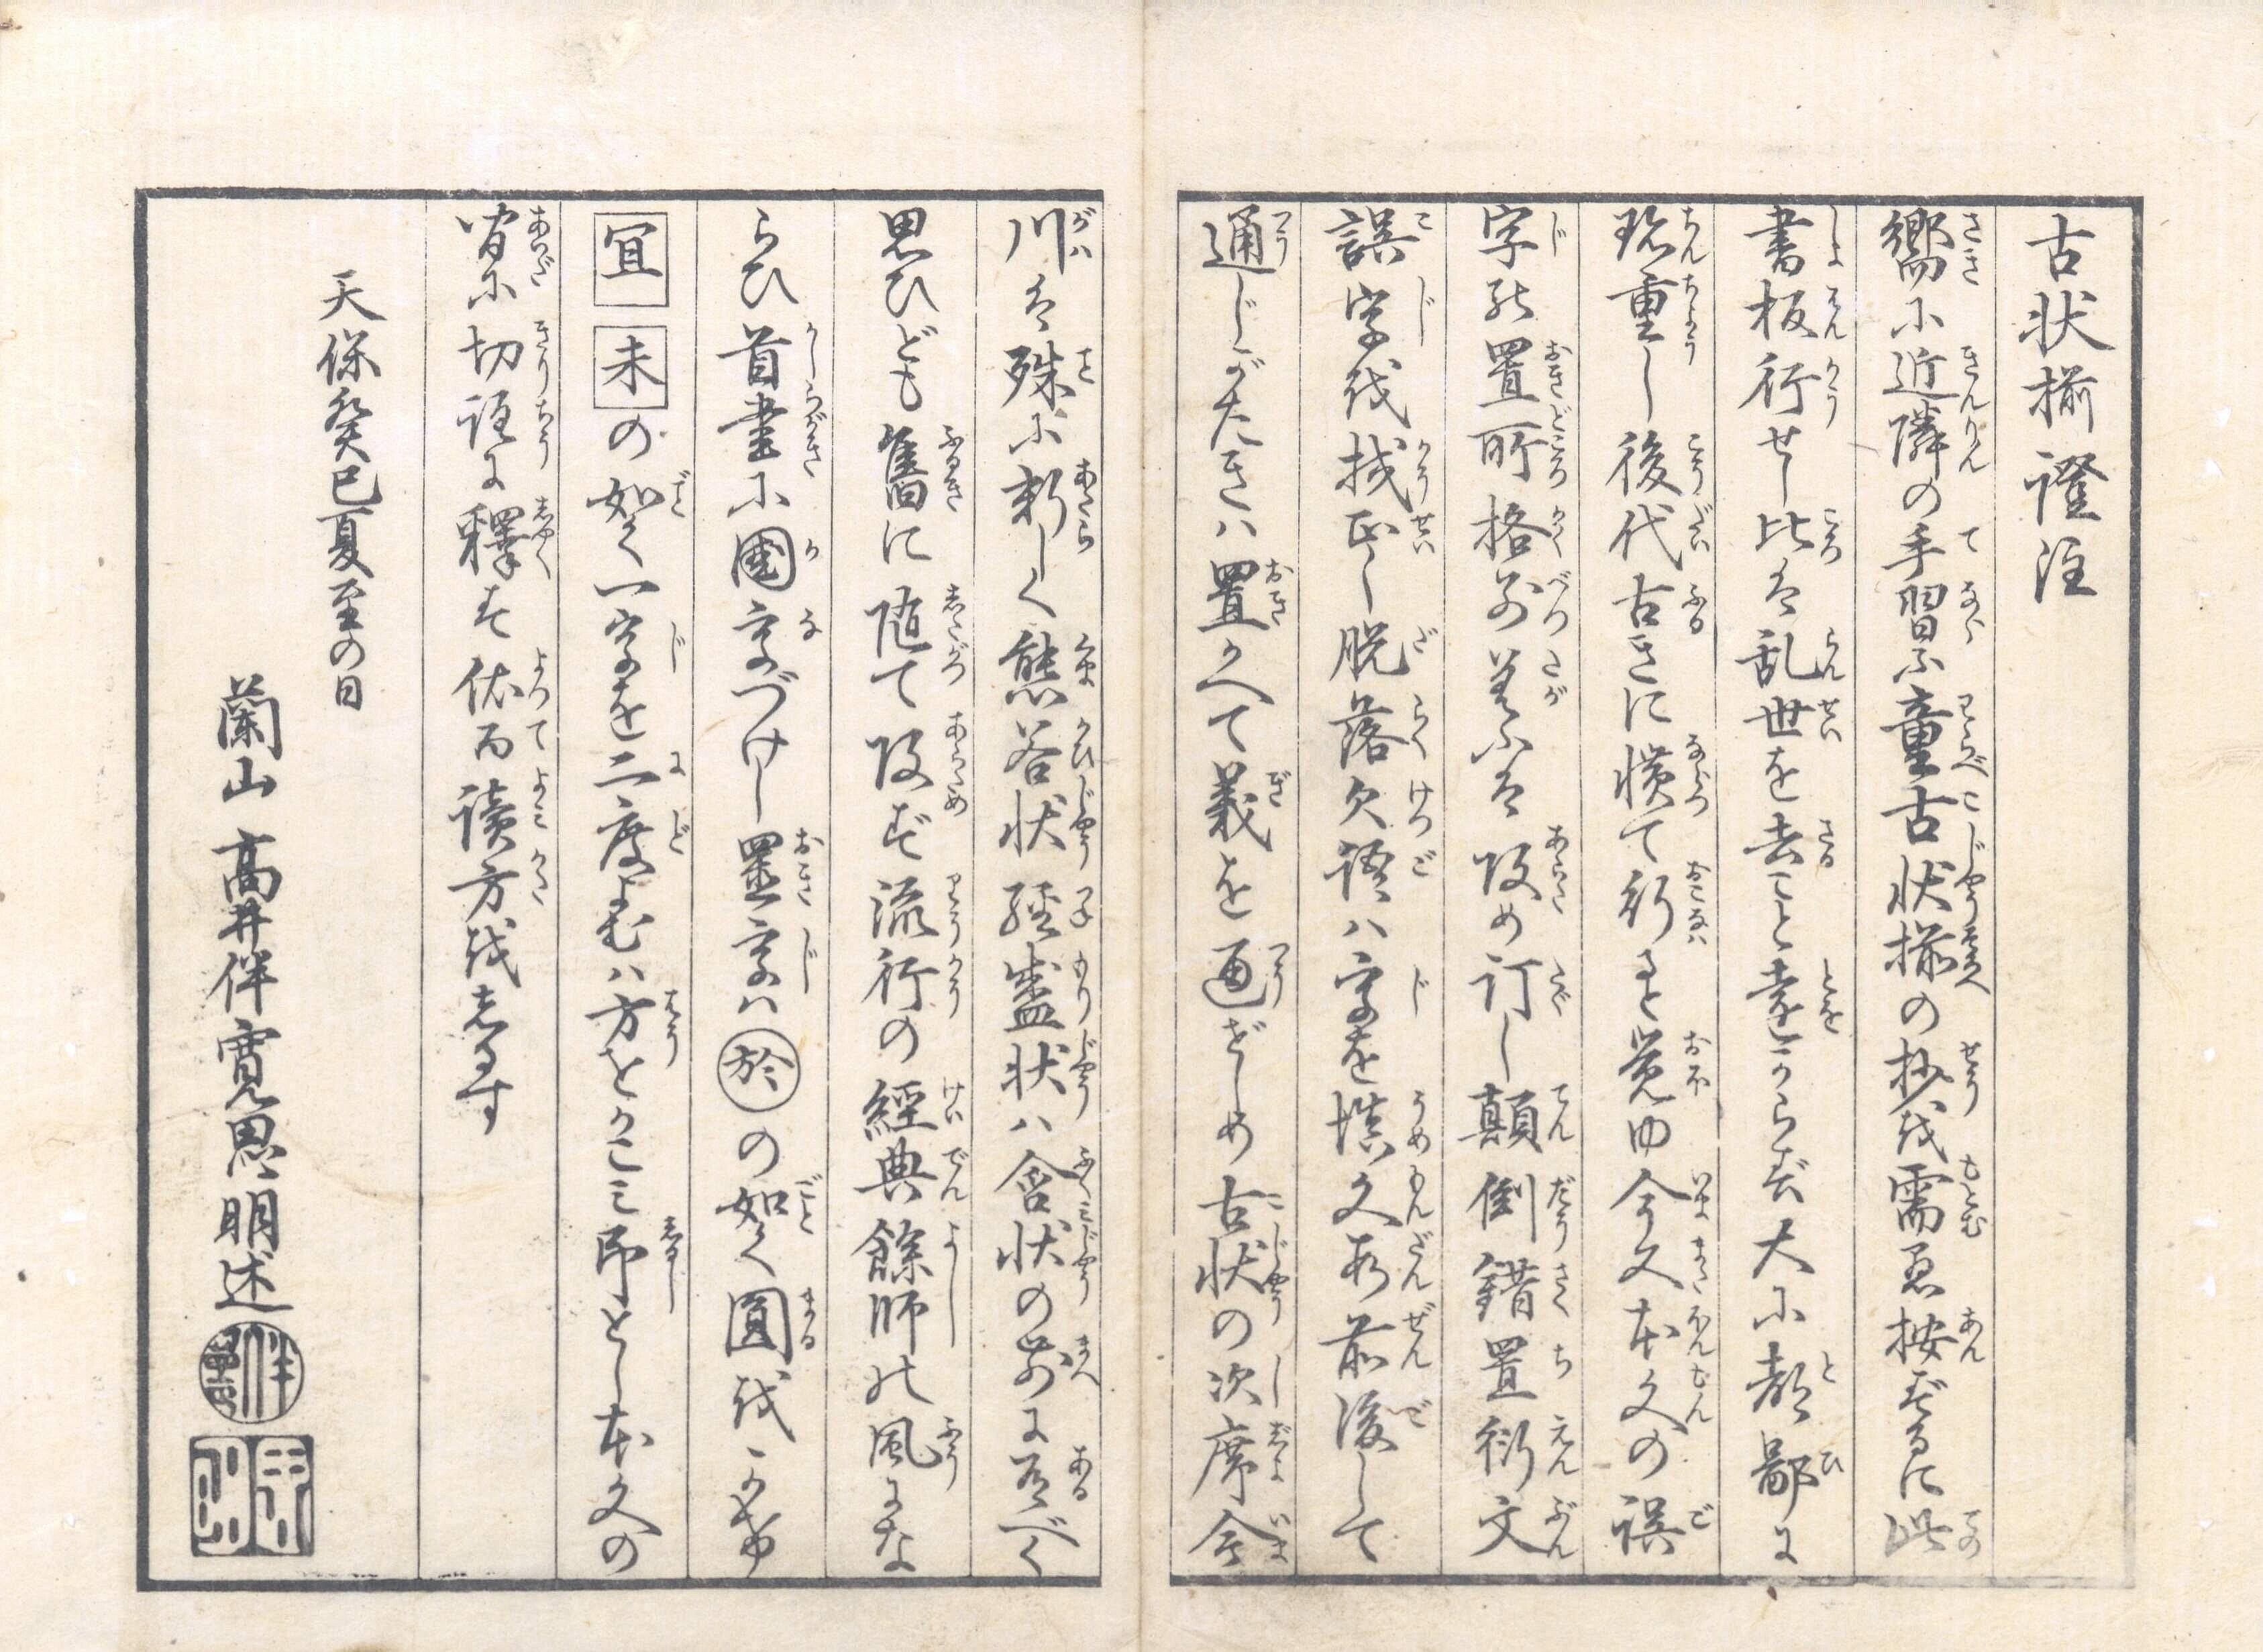 古状揃證注
嚮に近隣の手習ふ童古状揃の抄を需む按ずるに此
書板行せし比は乱世を去こと遠からず大に都鄙に
珍重し後代古きに慣て行ると覚ゆ今又本文の誤
字の置所格別差ふは改め訂し顛倒錯置衍文
誤字を挍正し脱落欠語ハ字を填文段前後して
通じがたきハ置かへて義を通ぜしめ古状の次席今
川は殊に新しく熊谷状経盛状ハ含状の前に有べく
思ひども舊に随て改ず流行の經典餘師の風にな
らひ首書に國字づけし置字ハ於の如く圓をかけ
宜未の如く一字を二度よむハ方をかこミ印とし本文の
間に切注に釋す依而讀方をしるす
天保癸巳夏至の日
蘭山高井伴寛思明述